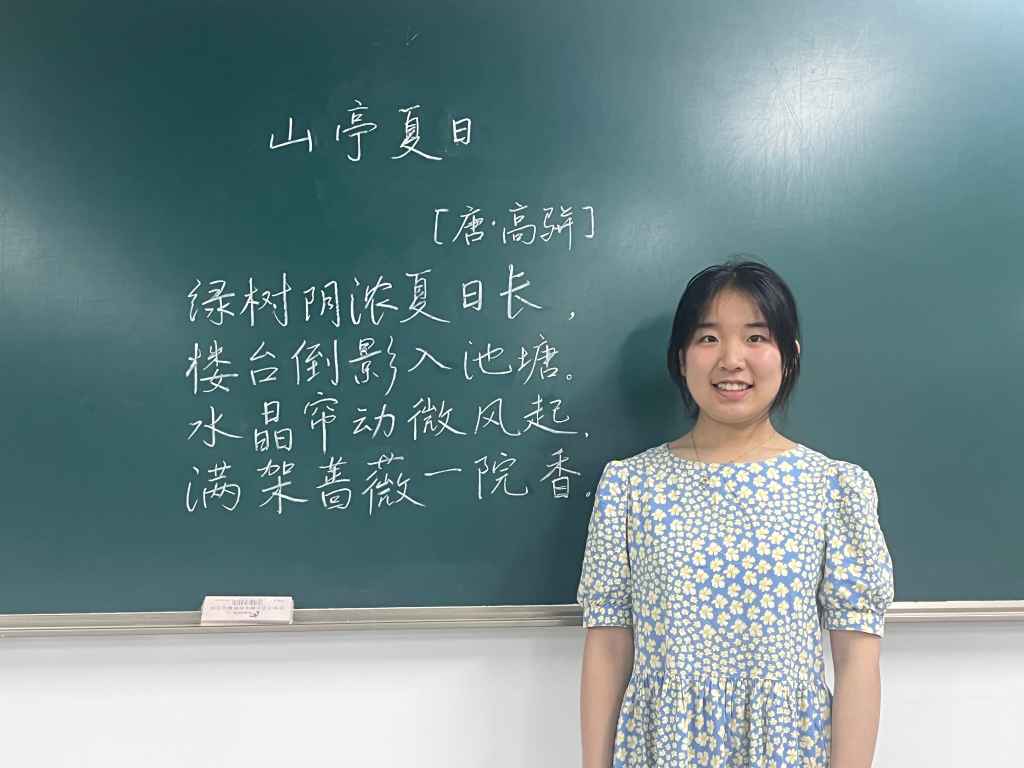 山亭夏日
[唐·高骈]
绿树阴浓夏日长，
楼台倒影入池塘。
水晶帘动微风起，
满架蔷薇一院香。